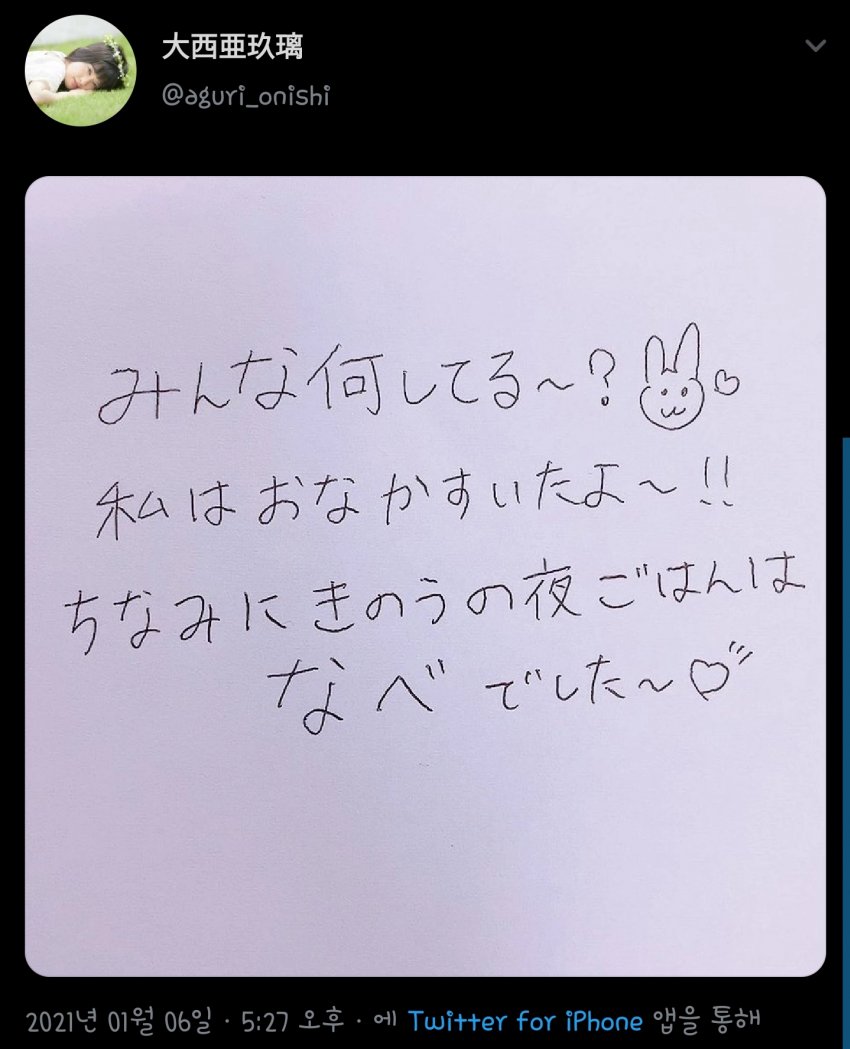 大西亜玖璃
@aguri_onishi
みんな何してる〜?
私はおなかすいたよ〜!!
ちなみにきのうの夜ごはんは
なべでした〜♡
2021년 01월 06일 · 5:27 오후 · 에 Twitter for iPhone 앱을 통해